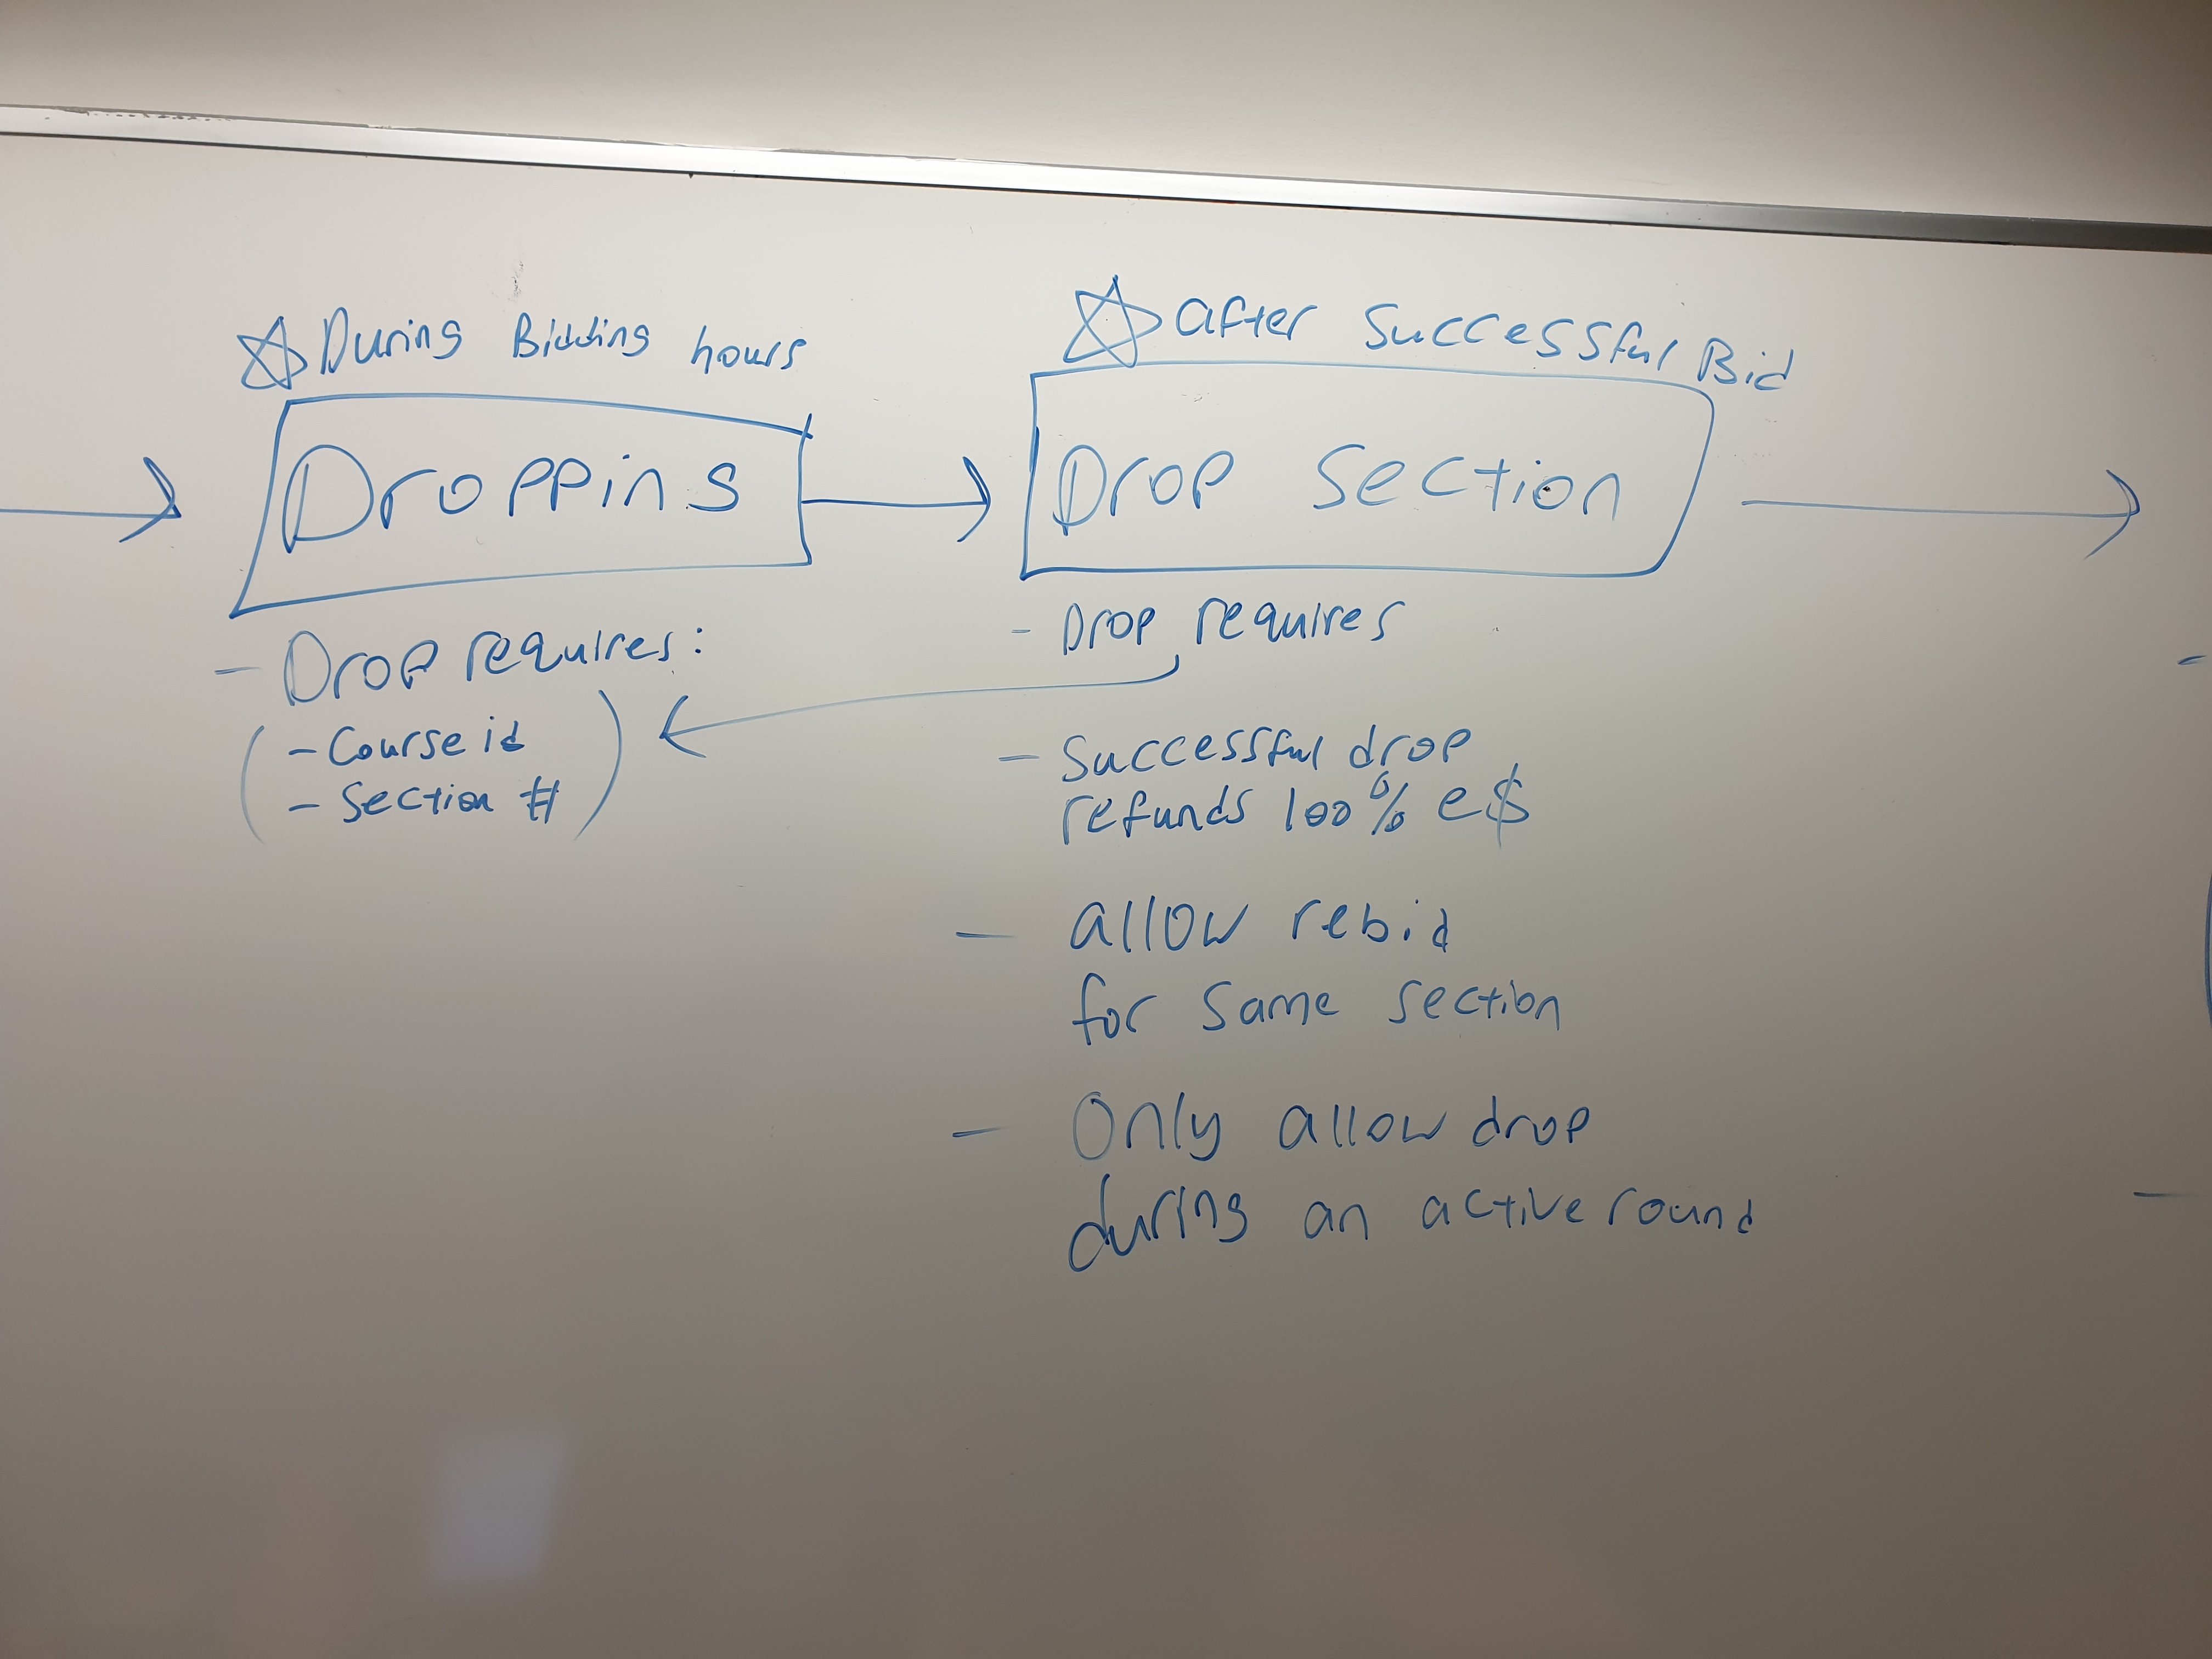 During Bidding hours
Dropping
- Drop requires:
- Course id
- Section #
After Successful Bid
Drop Section
- Drop requires
- Successful drop
refunds 100% e$
- allow rebid
for same section
- Only allow drop
during an active round